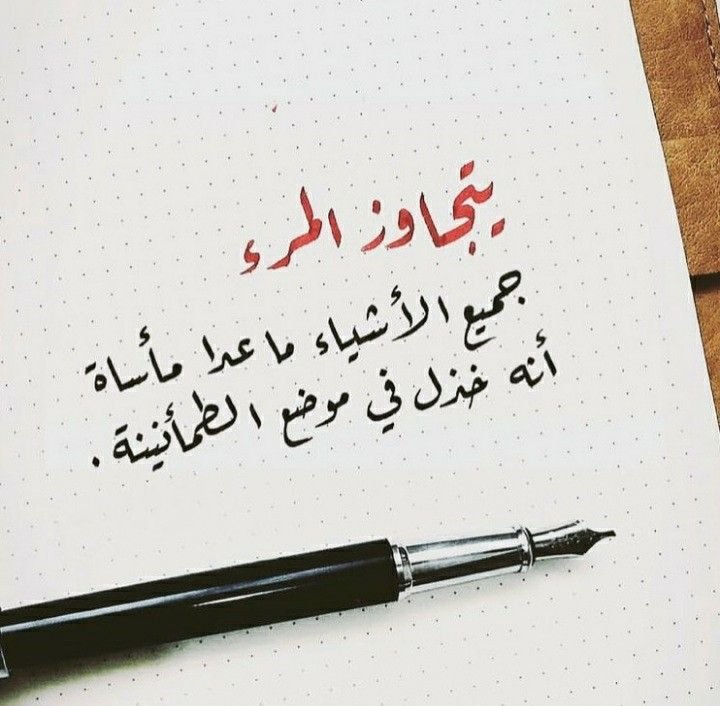 يتجاوز المرء
جميع الأشياء ما عدا مأساة
أنه خذل في موضع الطمأنينة .